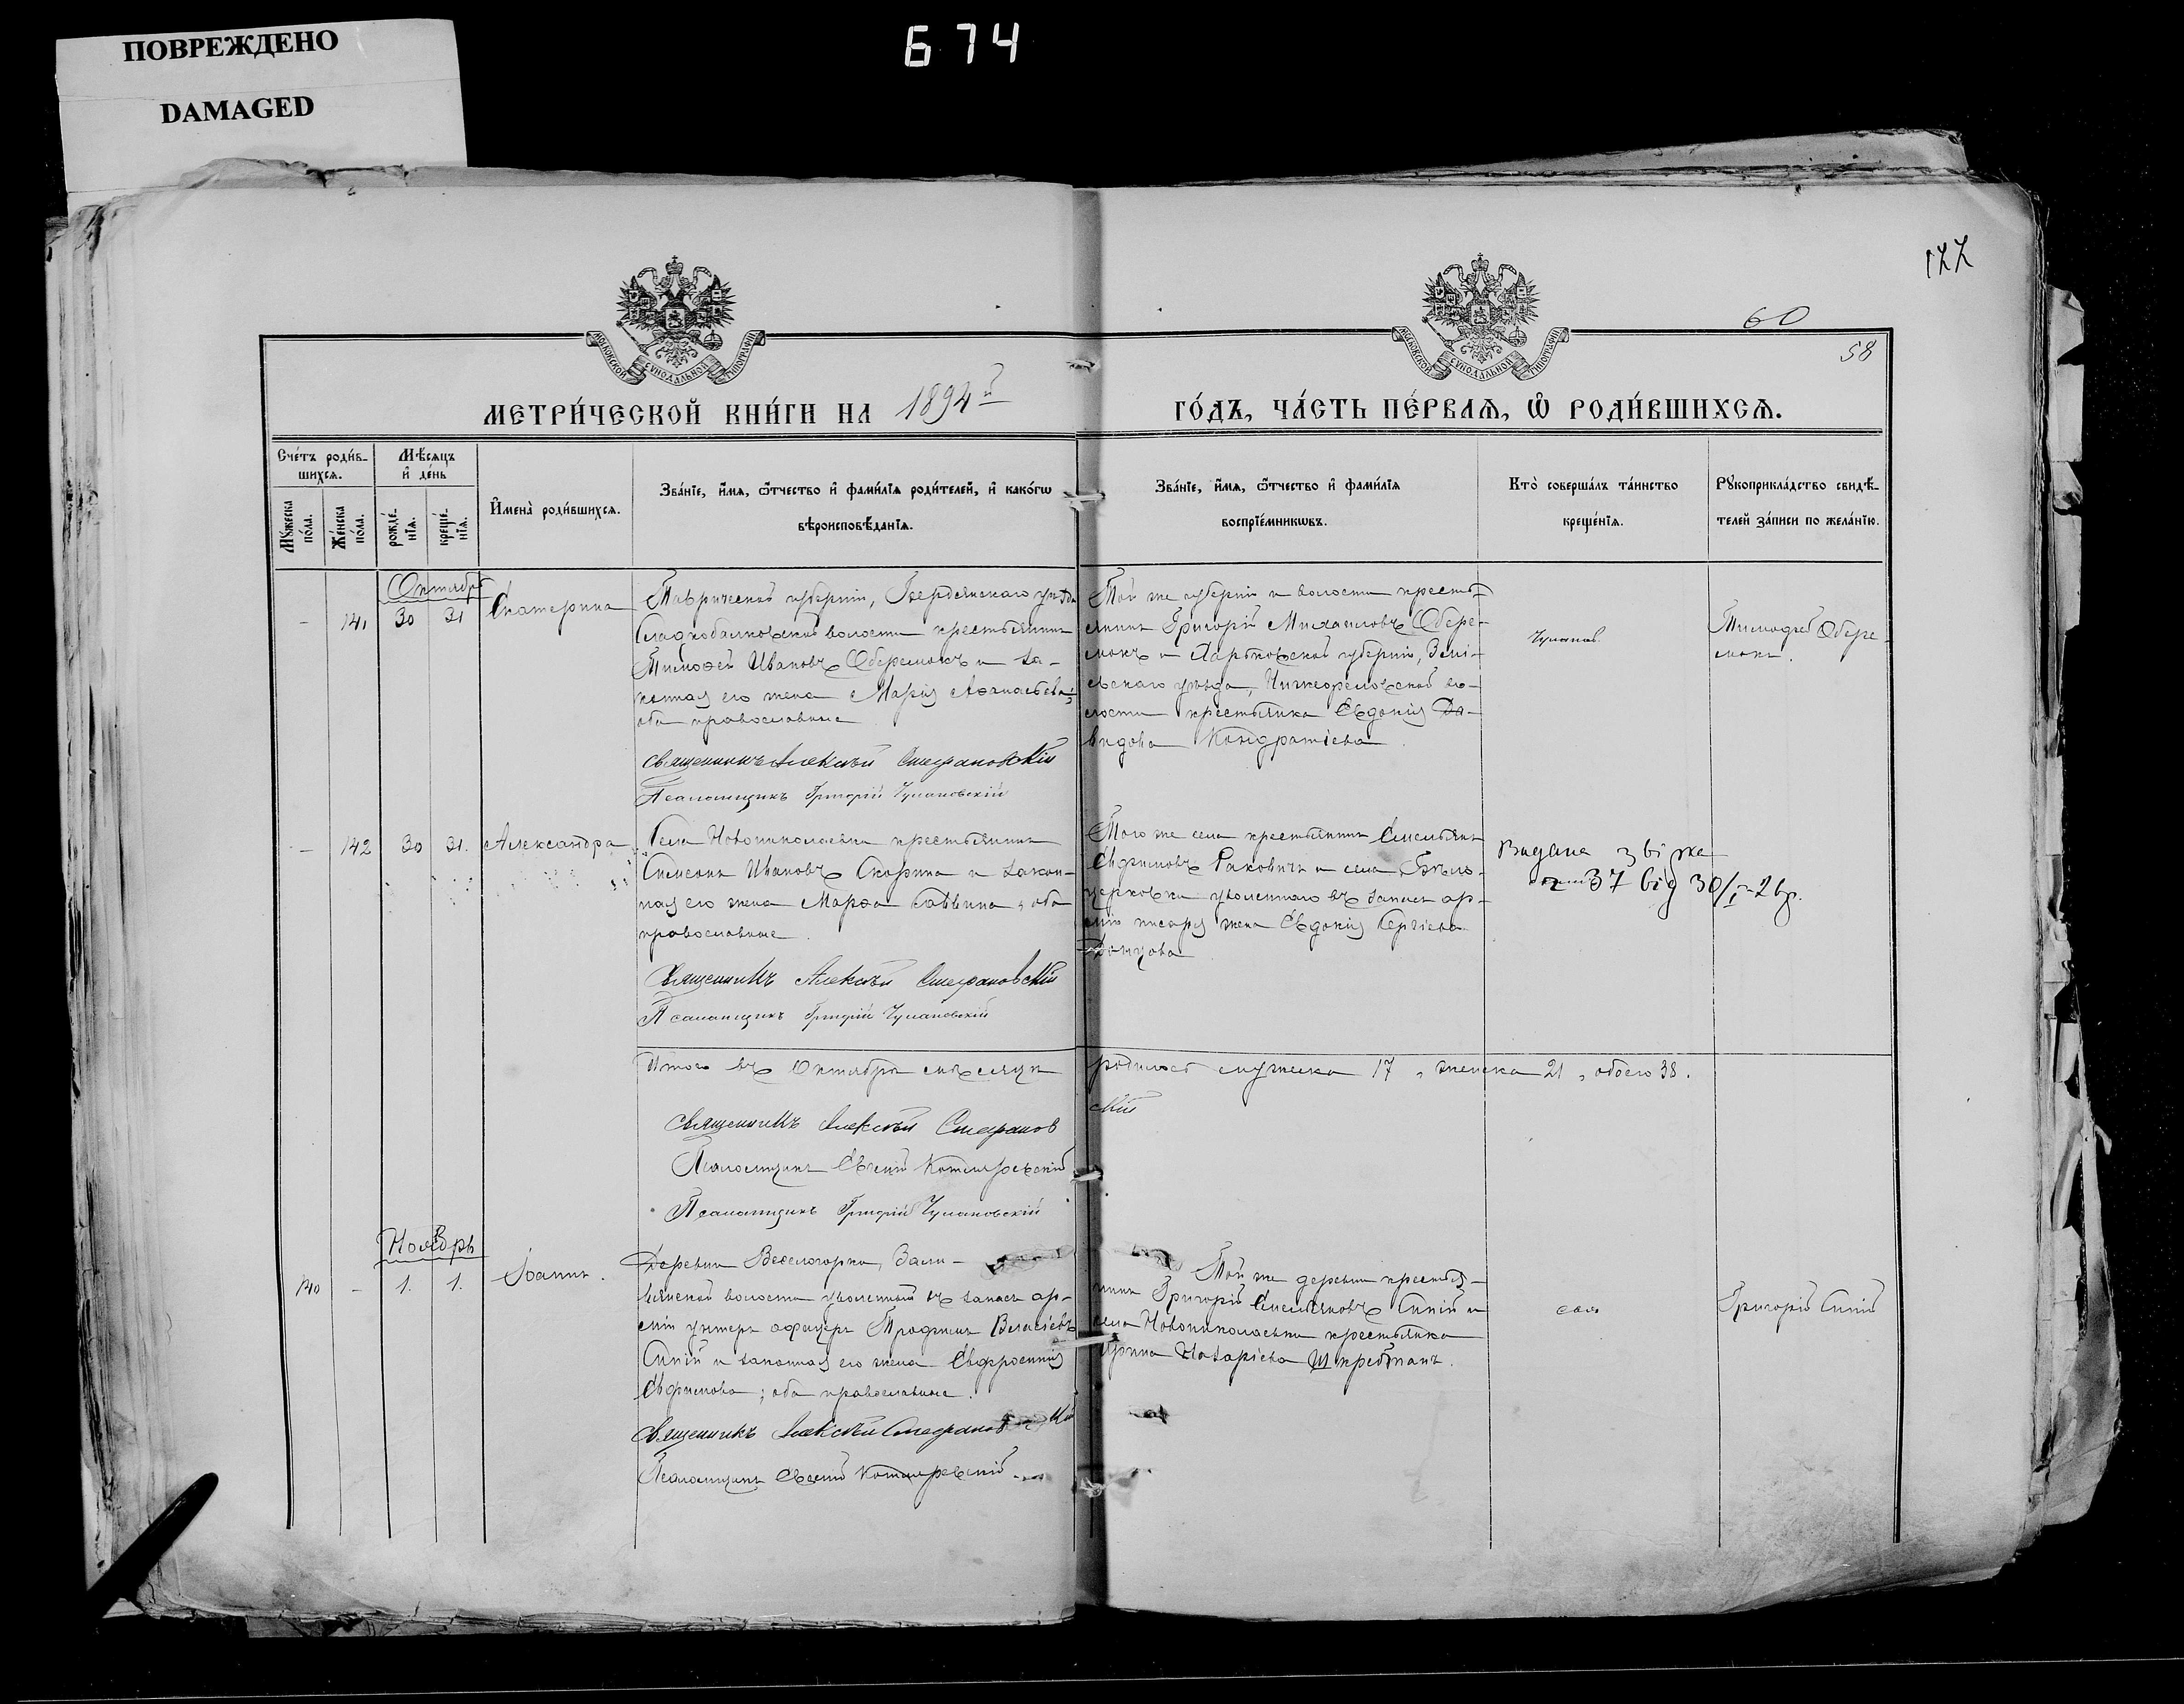 ПОВРЕЖДЕНО
DAMAGED
674
177
60
58
МОСКОВСКОЙ СУНОДАЛЬНОЙ ТИПОГРАФІИ
МОСКОВСКОЙ СУНОДАЛЬНОЙ ТИПОГРАФІИ
МЕТРИ́ЧЕСКОЙ КНИ́ГИ НА 1894й
ГО́ДЪ, ЧА́СТЬ ПЕ́РВАѦ, Ѡ҆ РОДИ́ВШИХСѦ.
Сче́тъ роди́в-
шихсѧ.
Мѣ́сѧцъ
и҆ де́нь
Мꙋ́жеска по́ла.
Же́нска по́ла.
рожде́-нїѧ.
креще́-нїѧ.
И҆мена̀ роди́вшихсѧ.
Зва́нїе, и҆́мѧ, ѻ҆́тчество и҆ фами́лїѧ роди́телей, и҆ како́гѡ
вѣроисповѣ́данїѧ.
Зва́нїе, и҆́мѧ, ѻ҆́тчество и҆ фами́лїѧ
воспрїе́мникѡвъ.
Кто̀ соверша́лъ та́инство
креще́нїѧ.
Рꙋкоприкла́дство свидѣ́-
телей за́писи по жела́нїю.
Октябрь
- 141 30 31 Екатерина
Таврической губерніи, Бердянскаго уѣзда
Сладкобалковской волости крестьянинъ
Тимофей Ивановъ Оберемокъ и за-
конная его жена Марія Аѳанасьева;
оба православные
Священникъ Алексѣй Стефановскій
Псаломщикъ Григорій Чумановскій
Той же губерніи и волости кресть-
янинъ Григорій Михаиловъ Обере-
мокъ и Харьковской губерніи, Змі-
евскаго уѣзда, во-
лости крестьянка Евдокія Да-
видова Кондратіева.
Тимофей Обере-
мокъ.
- 142 30 31. Александра
Села Новониколаевки крестьянинъ
Симеонъ Ивановъ Скорина и закон-
ная его жена Марѳа Саввина; оба
православные.
Священникъ Алексѣй Стефановскій
Псаломщикъ Григорій Чумановскій
Того же села крестьянинъ Емельянъ
Ефимовъ Раковичъ и села Бѣло-
церковки уволеннаго въ запасъ ар-
міи писаря жена Евдокія Сергіева
Видана звірка
37 від 30/I-2 р.
Итого въ Октябрѣ мѣсяцѣ родилось мужеска 17, женска 21, обоего 38.
Священникъ Алексѣй Стефановскій
Псаломщикъ Котляревскій
Псаломщикъ Григорій Чумановскій
Ноябрь
140 - 1. 1. Іоаннъ.
Деревни Веселогорки,
волости уволенный въ запасъ ар-
міи унтеръ офицеръ Трофимъ Власіевъ
Синій и законная его жена Евфросинія
Ефимова; оба православные.
Священникъ Алексѣй Стефановскій
Псаломщикъ Котляревскій
Той же деревни крестья-
нинъ Григорій Емельяновъ Синій и
села Новониколаевки крестьянка
Ирина Назаріева
Григорій Синій